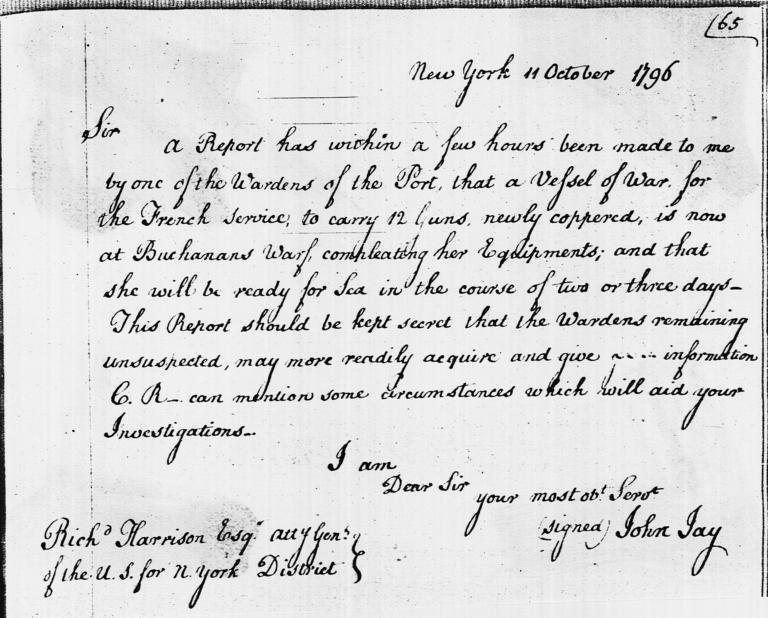 165
New York 11 October 1796
Sir
A Report has within a few hours been made to me
by one of the Wardens of the Port, that a Vessel of War, for
the French Service, to carry 12 Guns, newly coppered, is now
at Buchanans Warf, compleating her Equipments; and that
she will be ready for Sea in the course of two or three days—
This Report should be kept secret that the Wardens remaining
unsuspected, may more readily acquire and give information
C. R— can mention some circumstances which will aid your
Investigations—
I am
Dear Sir
your most obt. Servt
(signed) John Jay
Richd Harrison Esqr. atty Genl.
of the U. S. for N. York District